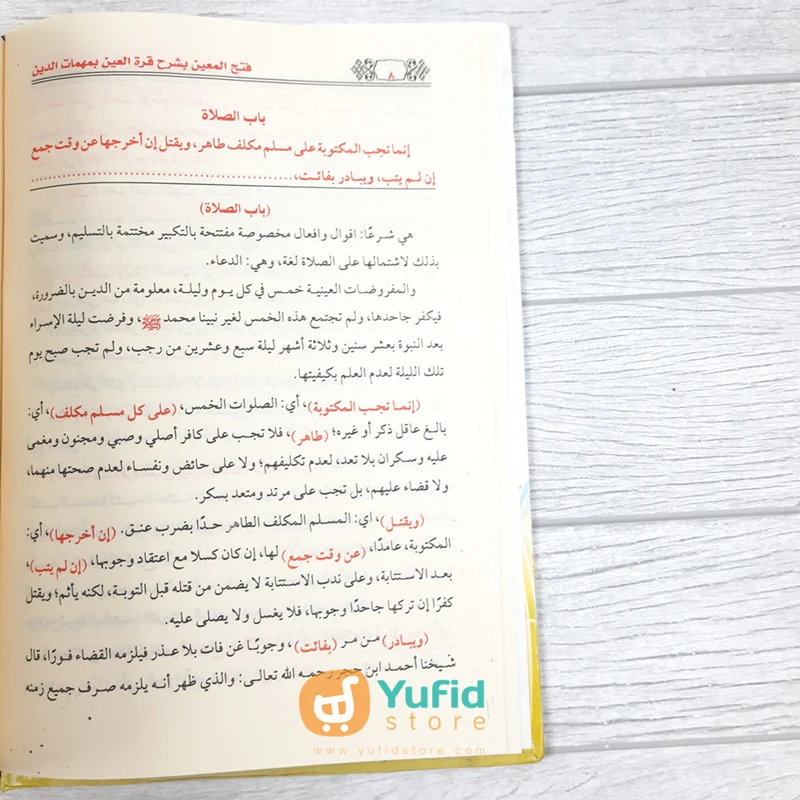 ٨
فتح المعين بشرح قرة العين بمهمات الدين
باب الصلاة
إنما تجب المكتوبة على مسلم مكلف طاهر، ويقتل إن أخرجها عن وقت جمع
إن لم يتب، ويبادر بفائت، ................................................
(باب الصلاة)
هي شرعًا: اقوال وافعال مخصوصة مفتتحة بالتكبير مختتمة بالتسليم، وسميت
بذلك لاشتمالها على الصلاة لغة، وهي: الدعاء.
والمفروضات العينية خمس في كل يوم وليلة، معلومة من الدين بالضرورة،
فيكفر جاحدها، ولم تجتمع هذه الخمس لغير نبينا محمد ﷺ، وفرضت ليلة الإسراء
بعد النبوة بعشر سنين وثلاثة أشهر ليلة سبع وعشرين من رجب، ولم تجب صبح يوم
تلك الليلة لعدم العلم بكيفيتها.
(إنما تجب المكتوبة)، أي: الصلوات الخمس، (على كل مسلم مكلف)، أي:
بالغ عاقل ذكر أو غيره؛ (طاهر)، فلا تجب على كافر أصلي وصبي ومجنون ومغمى
عليه وسكران بلا تعد، لعدم تكليفهم؛ ولا على حائض ونفساء لعدم صحتها منهما،
ولا قضاء عليهم، بل تجب على مرتد ومتعد بسكر.
(ويقتل)، اي: المسلم المكلف الطاهر حدًا بضرب عنق. (إن أخرجها)، أي:
المكتوبة، عامدًا، (عن وقت جمع) لها، إن كان كسلا مع اعتقاد وجوبها، (إن لم يتب)،
بعد الاستتابة، وعلى ندب الاستتابة لا يضمن من قتله قبل التوبة، لكنه يأثم؛ ويقتل
كفرًا إن تركها جاحدًا وجوبها، فلا يغسل ولا يصلى عليه.
(ويبادر) من مر (بفائت)، وجوبًا عن فات بلا عذر فيلزمه القضاء فورًا، قال
شيخنا أحمد ابن حجر رحمه الله تعالى: والذي ظهر أنه يلزمه صرف جميع زمنه
Yufid
store
www.yufidstore.com